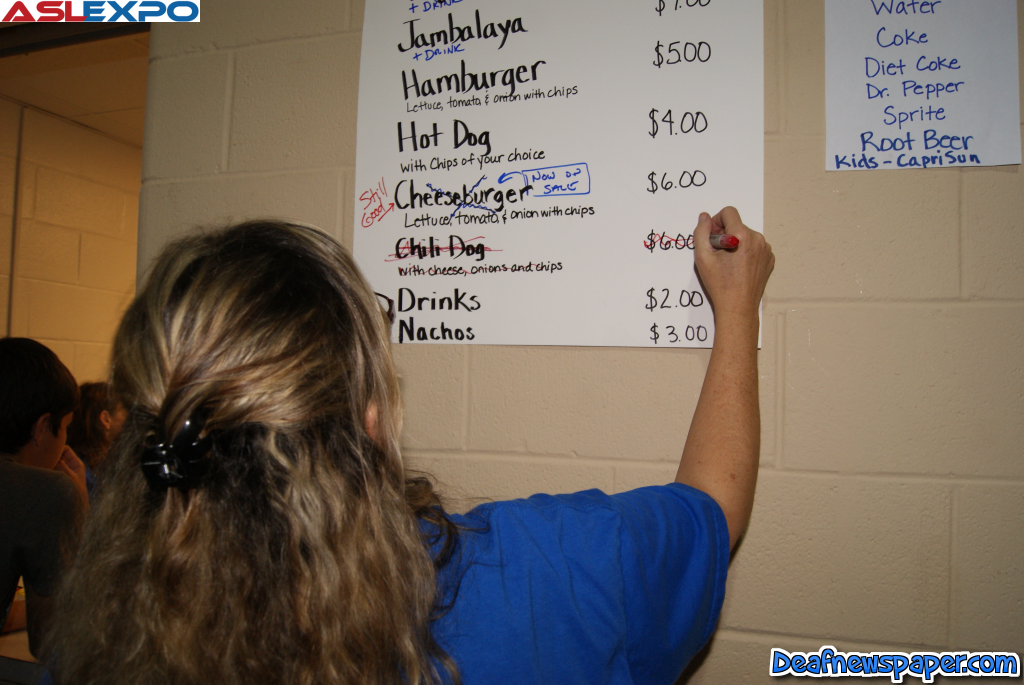 ASLEXPO
+ DRINK
Jambalaya $7.00
+ DRINK
Hamburger $5.00
Lettuce, tomato & onion with chips
Hot Dog $4.00
with Chips of your choice
Still Good
Cheeseburger $6.00
NOW ON SALE
Lettuce, tomato & onion with chips
Chili Dog $6.00
with cheese, onions and chips
Drinks $2.00
Nachos $3.00
Water
Coke
Diet Coke
Dr. Pepper
Sprite
Root Beer
Kids - CapriSun
Deafnewspaper.com